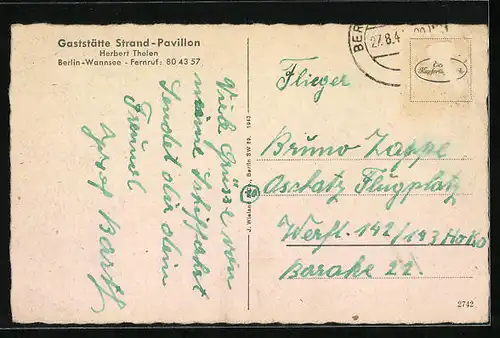 Gaststätte Strand-Pavillon
Herbert Thelen
Berlin-Wannsee - Fernruf: 80 43 57
Viele Grüsse von
meine Schiffahrt
sendet dir dein
Freund
Josef
J. Wieland
Berlin SW 29. 1943
BER
27.8.4
Flieger
Bruno Zappe
Oschatz Flugplatz
Werft. 142/143 HoKo
Barake 22.
2742